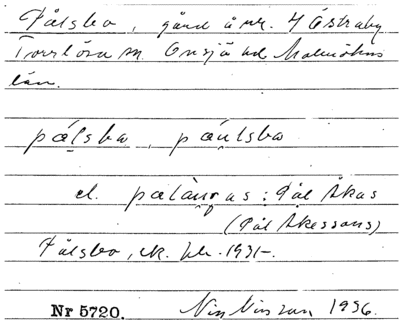 Pålsbo, gård å nr. 4 Östraby
Torrlösa sn. Onsjö hd Malmöhus
län.
pålsbo, påulsbo
el. palånas: Pål Åkas
(Pål Åkessons)
Pålsbo, ek. bl. 1931-.
Nr 5720. Nils Nilsson 1936.